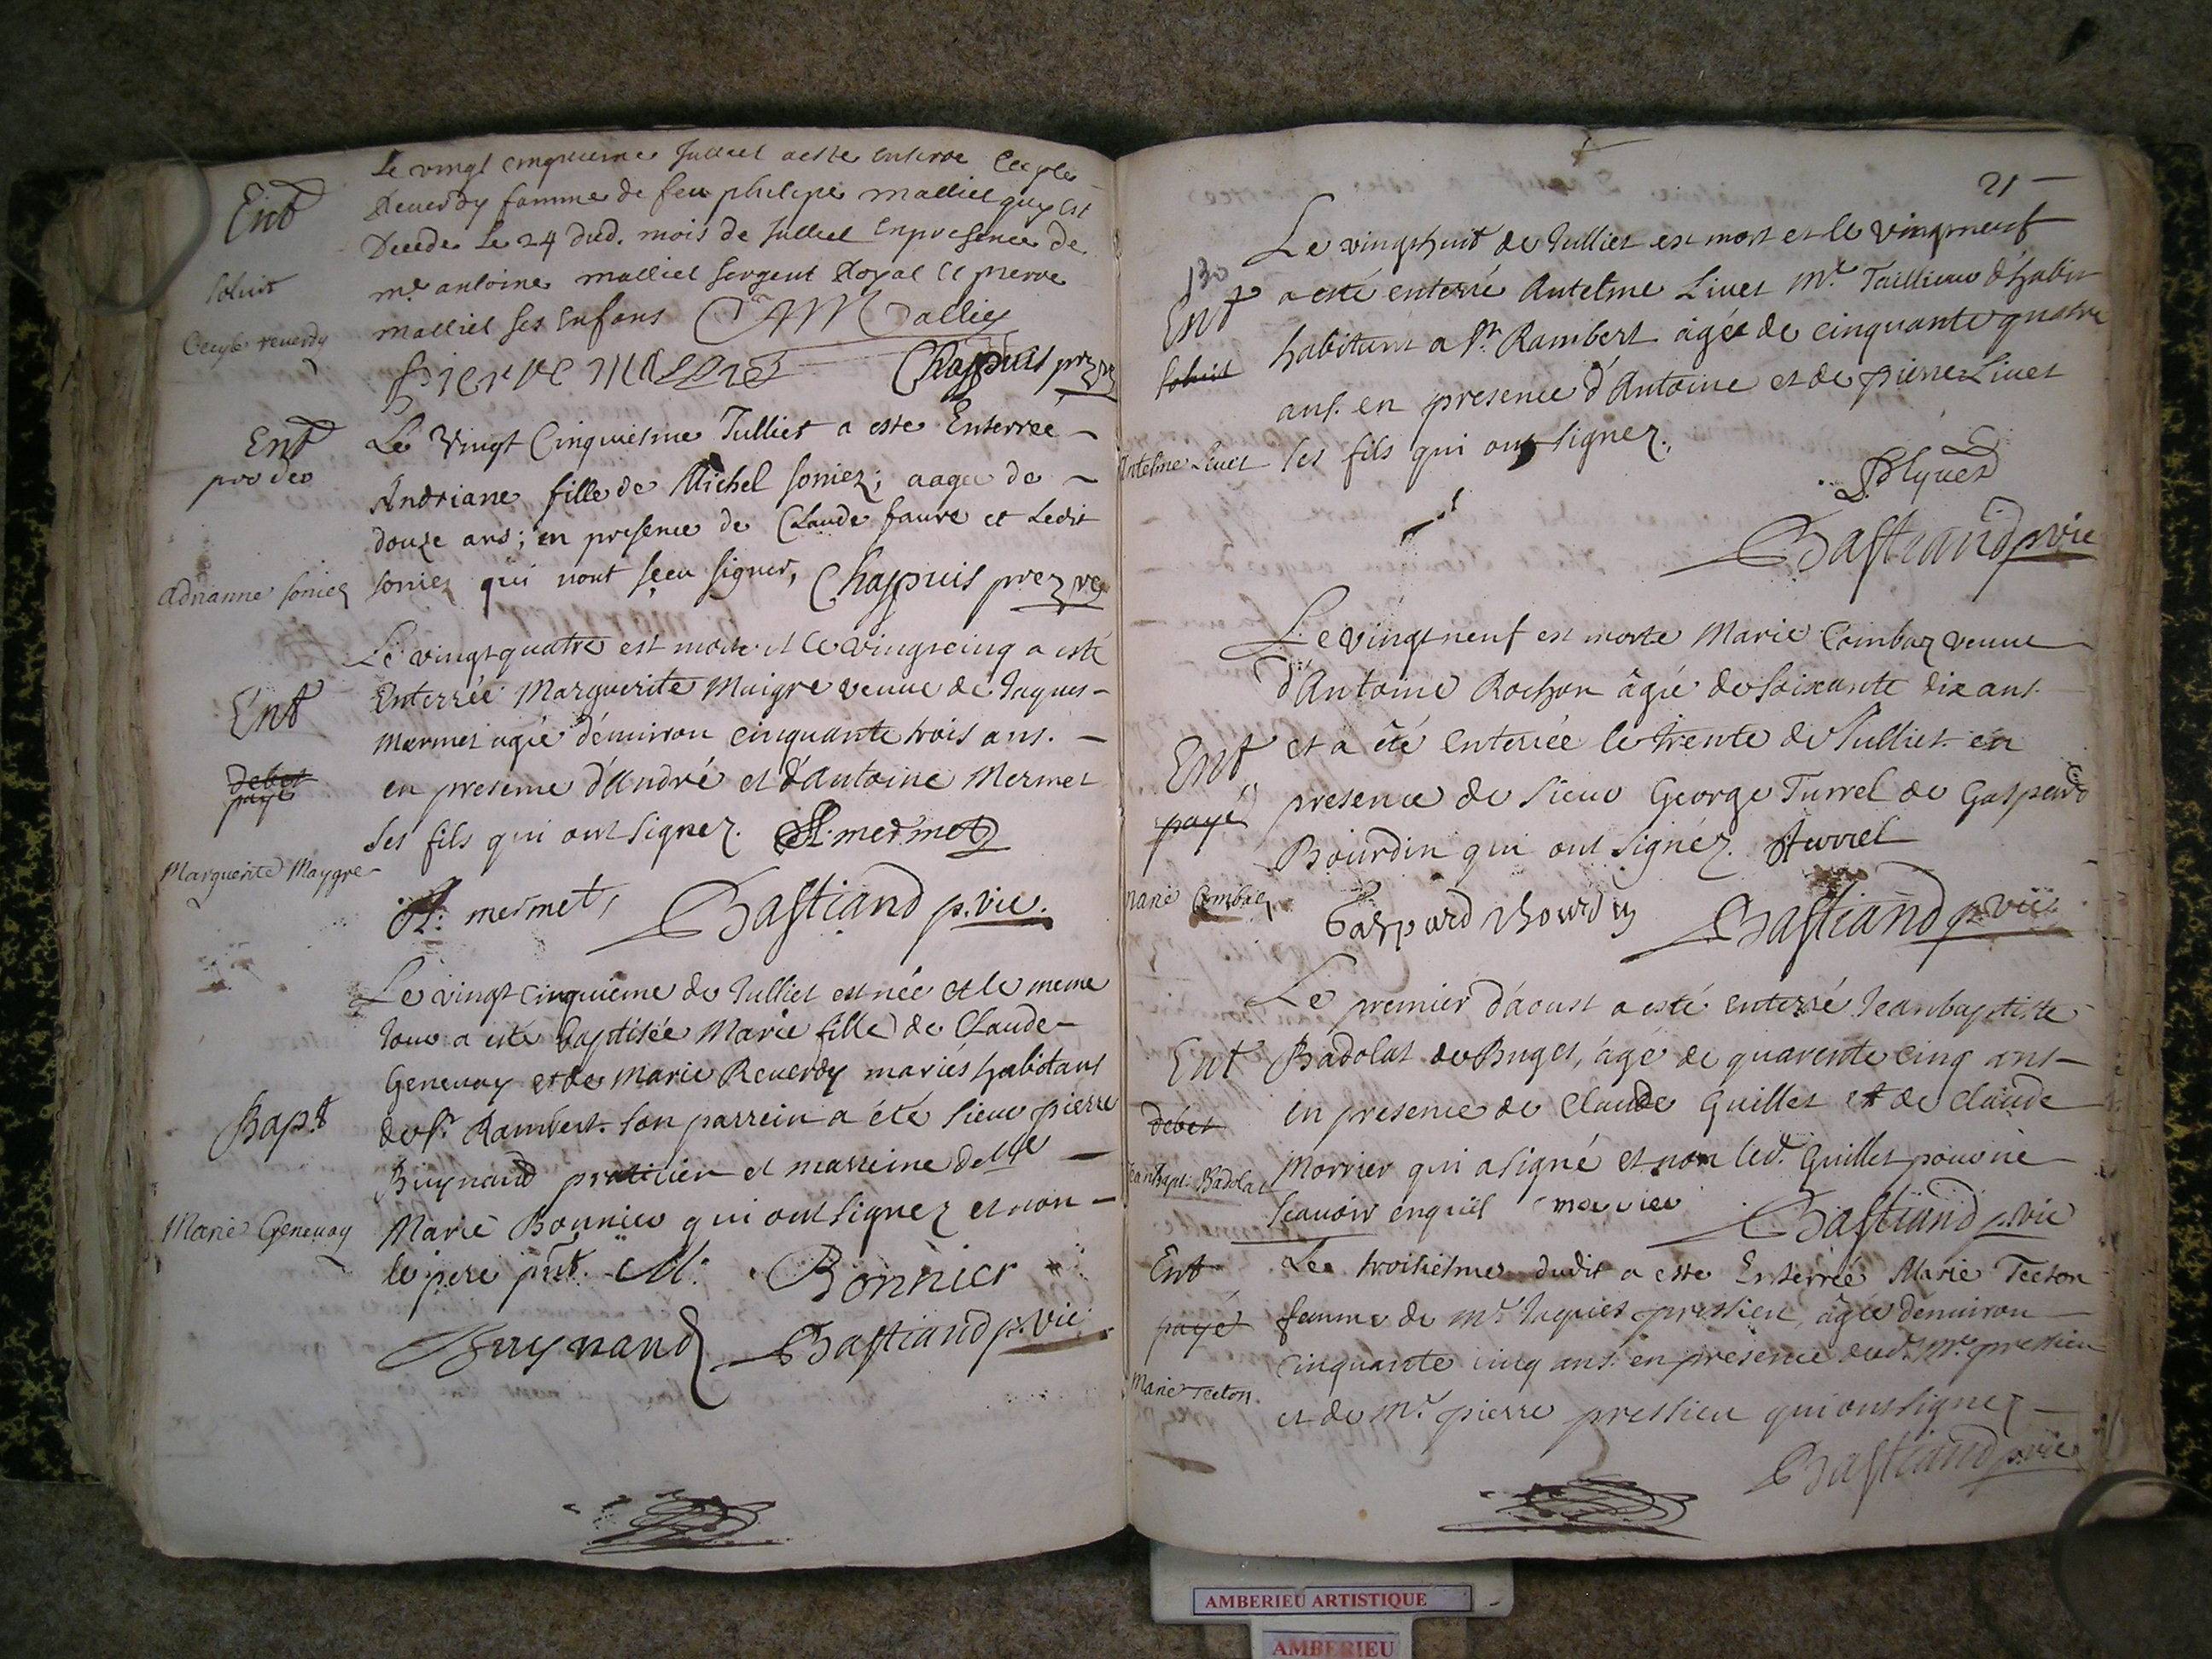 Ent
Le vingt cinquieme Julliet a este enterre Cecyle
Reuerdy famme de feu philipe malliet quy est
Decede le 24 dud. mois de Julliet En presence de
soluit
me antoine malliet sergent Royal et pierre
malliet ses enfans Malliet
Cecyle reuerdy
pierre malliet Chappuis
Ent
pro deo
Le Vingt Cinquiesme Julliet a este Enterrée
Andriane fille de Michel soniez; aagee de
douze ans; en presence de Claude faure et Ledit
Adrianne soniez
soniez qui nont sceu signer, Chappuis
Le vingt quatre est morte et le vingt cinq a esté
Ent
Enterrée Marguerite Maigre veuue de Jaques
Mermet agée d'enuiron cinquante trois ans.
debet
payé
en presence d'André et d'Antoine Mermet
ses fils qui ont signez. A. mermet
Marguerite Maygre
A. mermet, Bastiand p. vic.
Le vingt cinquieme de Julliet est née et le meme
Jour a esté baptisée Marie fille de Claude
Geneuay et de Marie Reuerdy mariés habitans
Bapt
de St Rambert. son parrein a été sieur pierre
Buynand praticien et marreine delle
Marie Geneuay
Marie Bonnier qui ont signez et non
le pere pnt. M. Bonnier
Buynand Bastiand p. vic
21
Le vingt huit de Julliet est mort et le vingt neuf
130
Ent
a esté enterré Antelme Liuet Me Taillieur d'habit
soluit
habitant a St Rambert âgée de cinquante quatre
ans. en presence d'Antoine et de pierre Liuet
Antelme Liuet
ses fils qui ont signez.
Bastiand p. vic
Le vingt neuf est morte Marie Combaz veuue
d'Antoine Rochon âgée de soixante dix ans.
Ent
et a été enterrée le trente de Julliet en
payé
presence de sieur George Turrel de Gaspard
Bourdin qui ont signéz. Turrel
Marie Combaz
Gaspard Bourdin Bastiand p. vic
Le premier d'aoust a esté enterré Jean baptiste
Ent
Badolat de Buges, âgé de quarente cinq ans
debet
en presence de Claude Guillet et de Claude
Jean bapt. Badolat
Morrier qui a signé et non led. Guillet pour ne
scauoir enquis morrier Bastiand p. vic
Ent
Le troisiesme dudit a esté Enterrée Marie Tecton
payé
femme de Me Jaques pressieu, âgée denuiron
cinquante cinq ans. en presence dud. Me pressieu
Marie Tecton.
et de Me pierre pressieu qui ont signez
Bastiand p. vic
AMBERIEU ARTISTIQUE
AMBERIEU